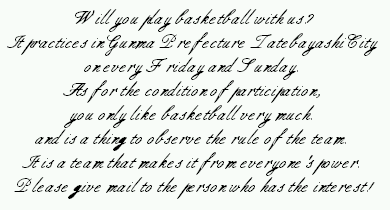 Will you play basketball with us?
It practices in Gunma Prefecture Tatebayashi City
on every Friday and Sunday.
As for the condition of participation,
you only like basketball very much.
and is a thing to observe the rule of the team.
It is a team that makes it from everyone's power.
Please give mail to the person who has the interest!